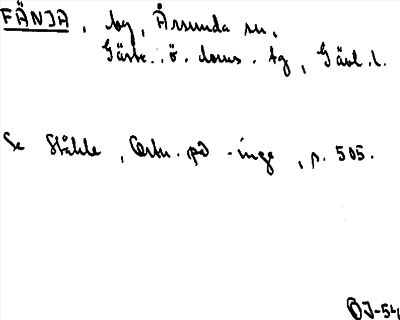 FÄNJA, by, Årsunda sn,
Gästr. ö. doms. tg, Gävl. l.
Se Ståhle, Ortn. på -inge, s. 505.
OJ-54